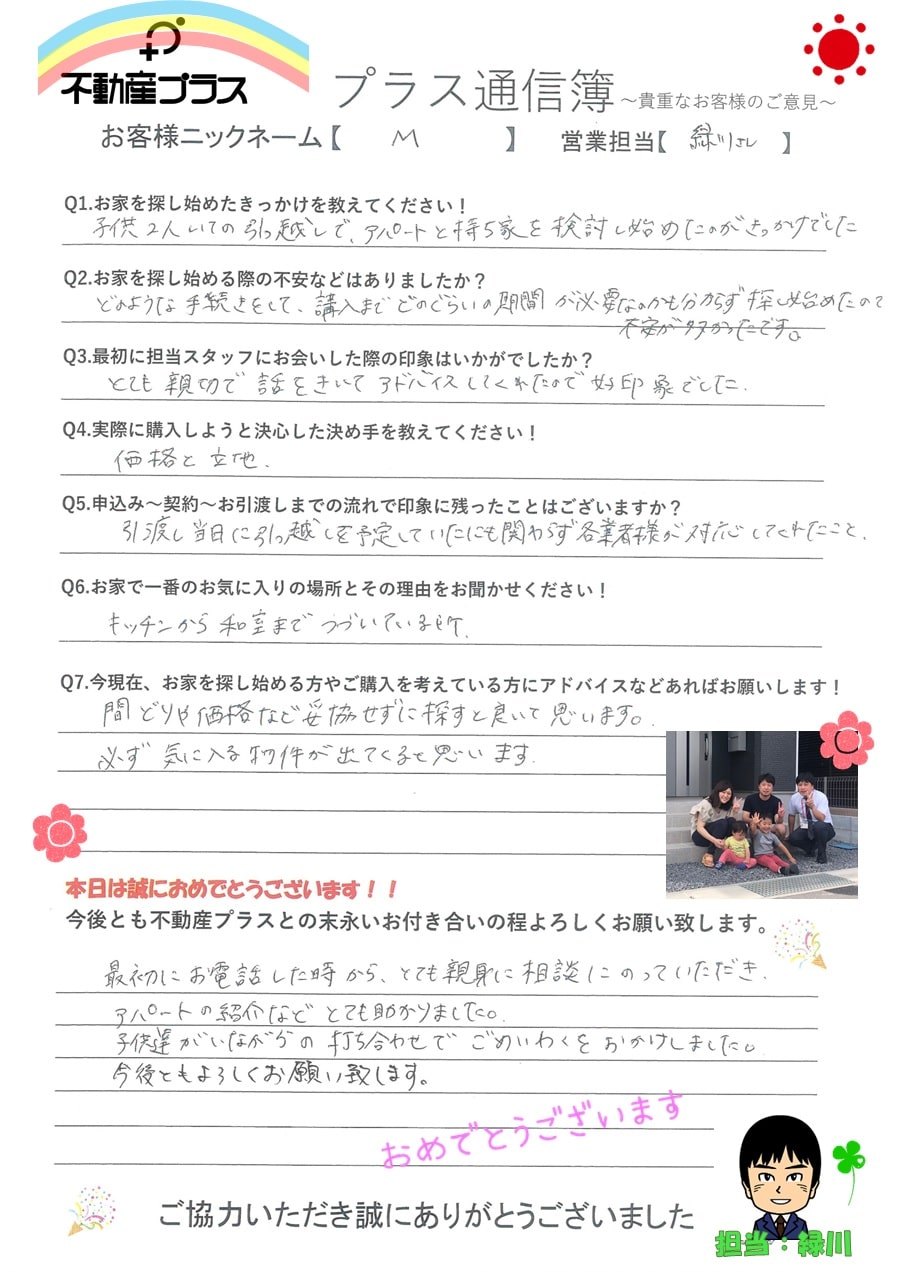 不動産プラス
プラス通信簿 ～貴重なお客様のご意見～
お客様ニックネーム【 M 】 営業担当【 緑川 】
Q1.お家を探し始めたきっかけを教えてください！
子供2人いての引っ越しで、アパートと持ち家を検討し始めたのがきっかけでした
Q2.お家を探し始める際の不安などはありましたか？
どのような手続きをして、講入までどのぐらいの期間が必要なのかも分からず探し始めたので
不安が多かったです。
Q3.最初に担当スタッフにお会いした際の印象はいかがでしたか？
とても親切で話をきいてアドバイスしてくれたので好印象でした.
Q4.実際に購入しようと決心した決め手を教えてください！
価格と立地.
Q5.申込み～契約～お引渡しまでの流れで印象に残ったことはございますか？
引渡し当日に引っ越しを予定していたにも関わらず各業者様が対応してくれたこと.
Q6.お家で一番のお気に入りの場所とその理由をお聞かせください！
キッチンから和室までつづいている所.
Q7.今現在、お家を探し始める方やご購入を考えている方にアドバイスなどあればお願いします！
間どりや価格など妥協せずに探すと良いて思います。
必ず気に入る物件が出てくると思います.
本日は誠におめでとうございます！！
今後とも不動産プラスとの末永いお付き合いの程よろしくお願い致します。
最初にお電話した時から、とても親身に相談にのっていただき.
アパートの紹介などとても助かりました。
子供達がいながらの打ち合わせでごめいわくをおかけしました。
今後ともよろしくお願い致します。
おめでとうございます
ご協力いただき誠にありがとうございました
担当：緑川